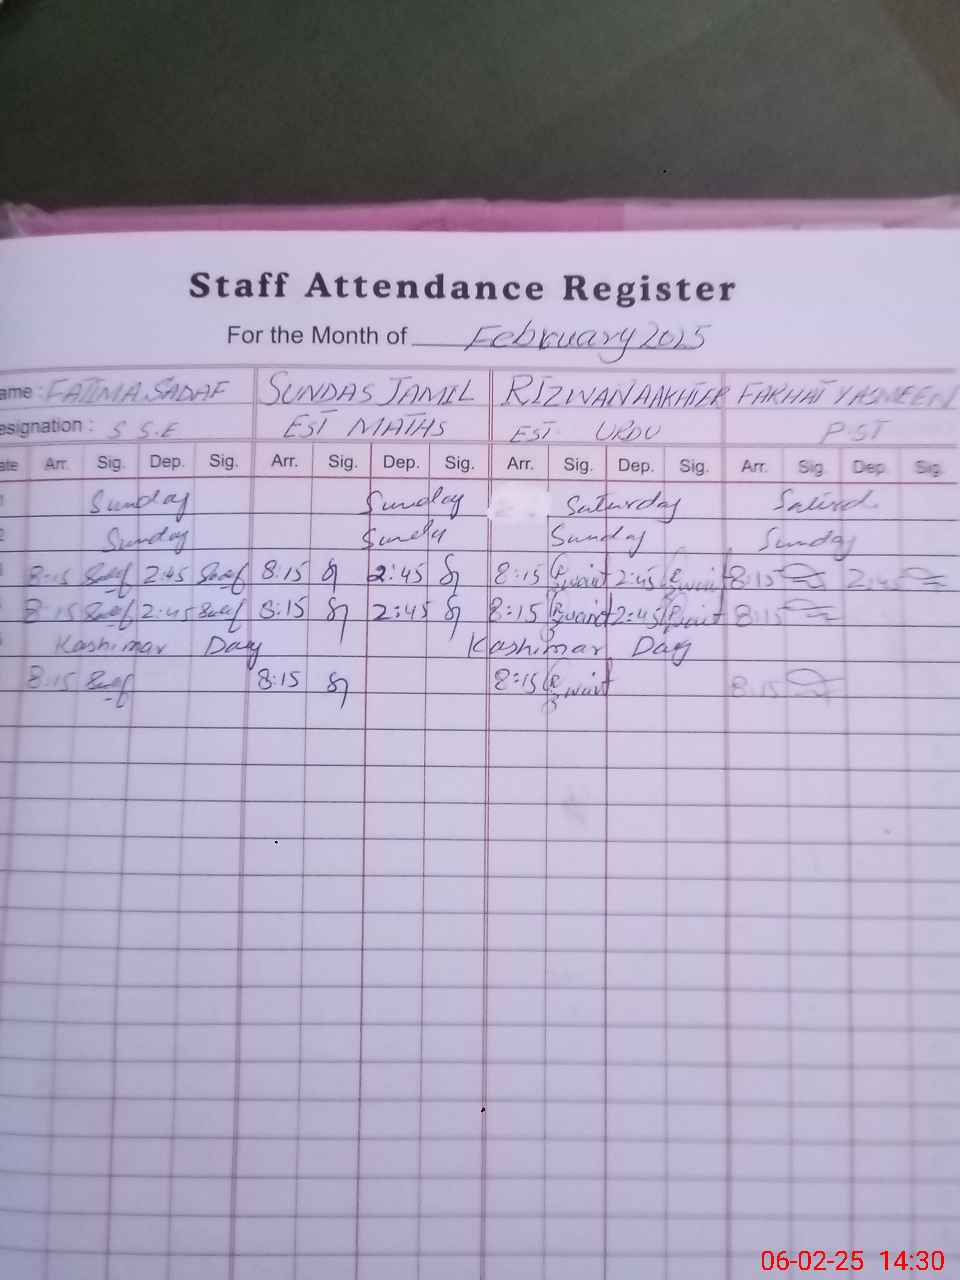 Staff Attendance Register
For the Month of February 2025
ame : FATIMA SADAF SUNDAS JAMIL RIZWANA AKHTER FARHAT YASMEEN
esignation : S S.E EST MATHS EST URDU P.ST
ate Arr. Sig. Dep. Sig. Arr. Sig. Dep. Sig. Arr. Sig. Dep. Sig. Arr. Sig Dep. Sig.
1 Sunday Sunday Saturday Saturd
2 Sunday Sundy Sunday Sunday
8:15 2:45 8:15 2:45 8:15 2:45 8:15 2:45
8:15 2:45 8:15 2:45 8:15 2:45 8:15
Kashimar Day Kashimar Day
8:15 8:15 8:15 8:15
06-02-25 14:30